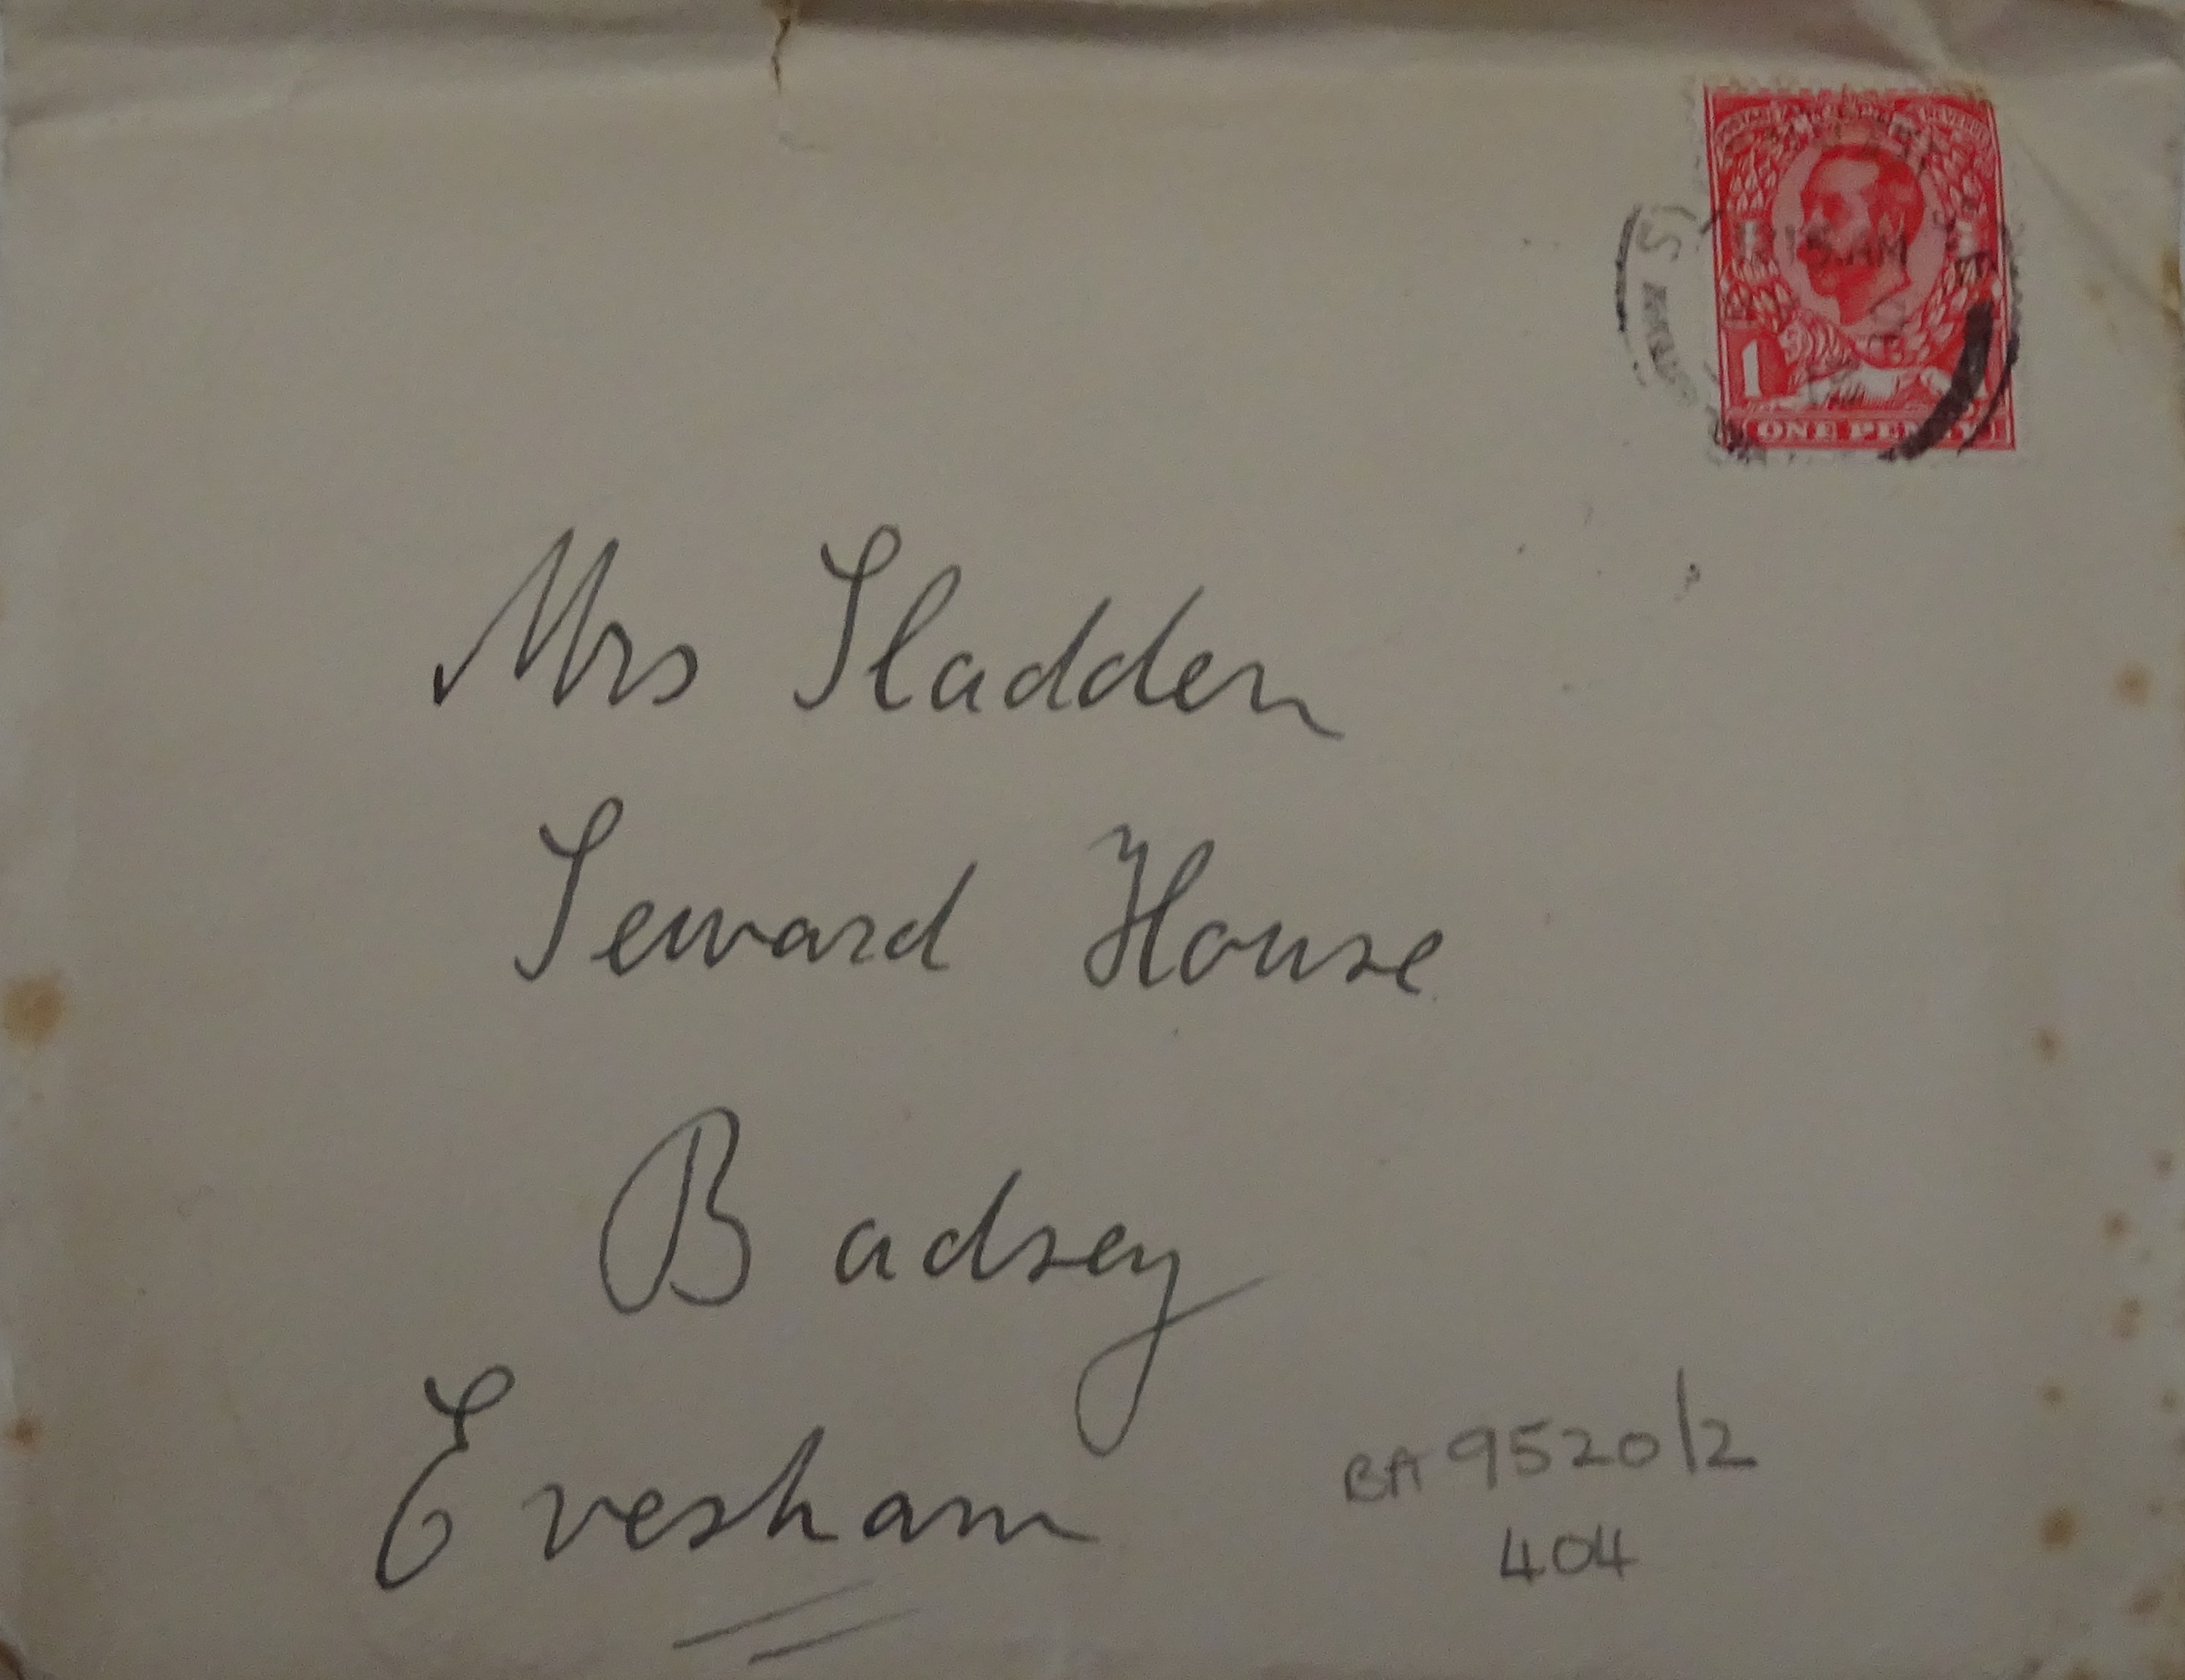 POSTAGE REVENUE
15 AM
1
ONE PENNY
Mrs Sladden
Seward House
Badsey
Evesham
BA 9520/2
404